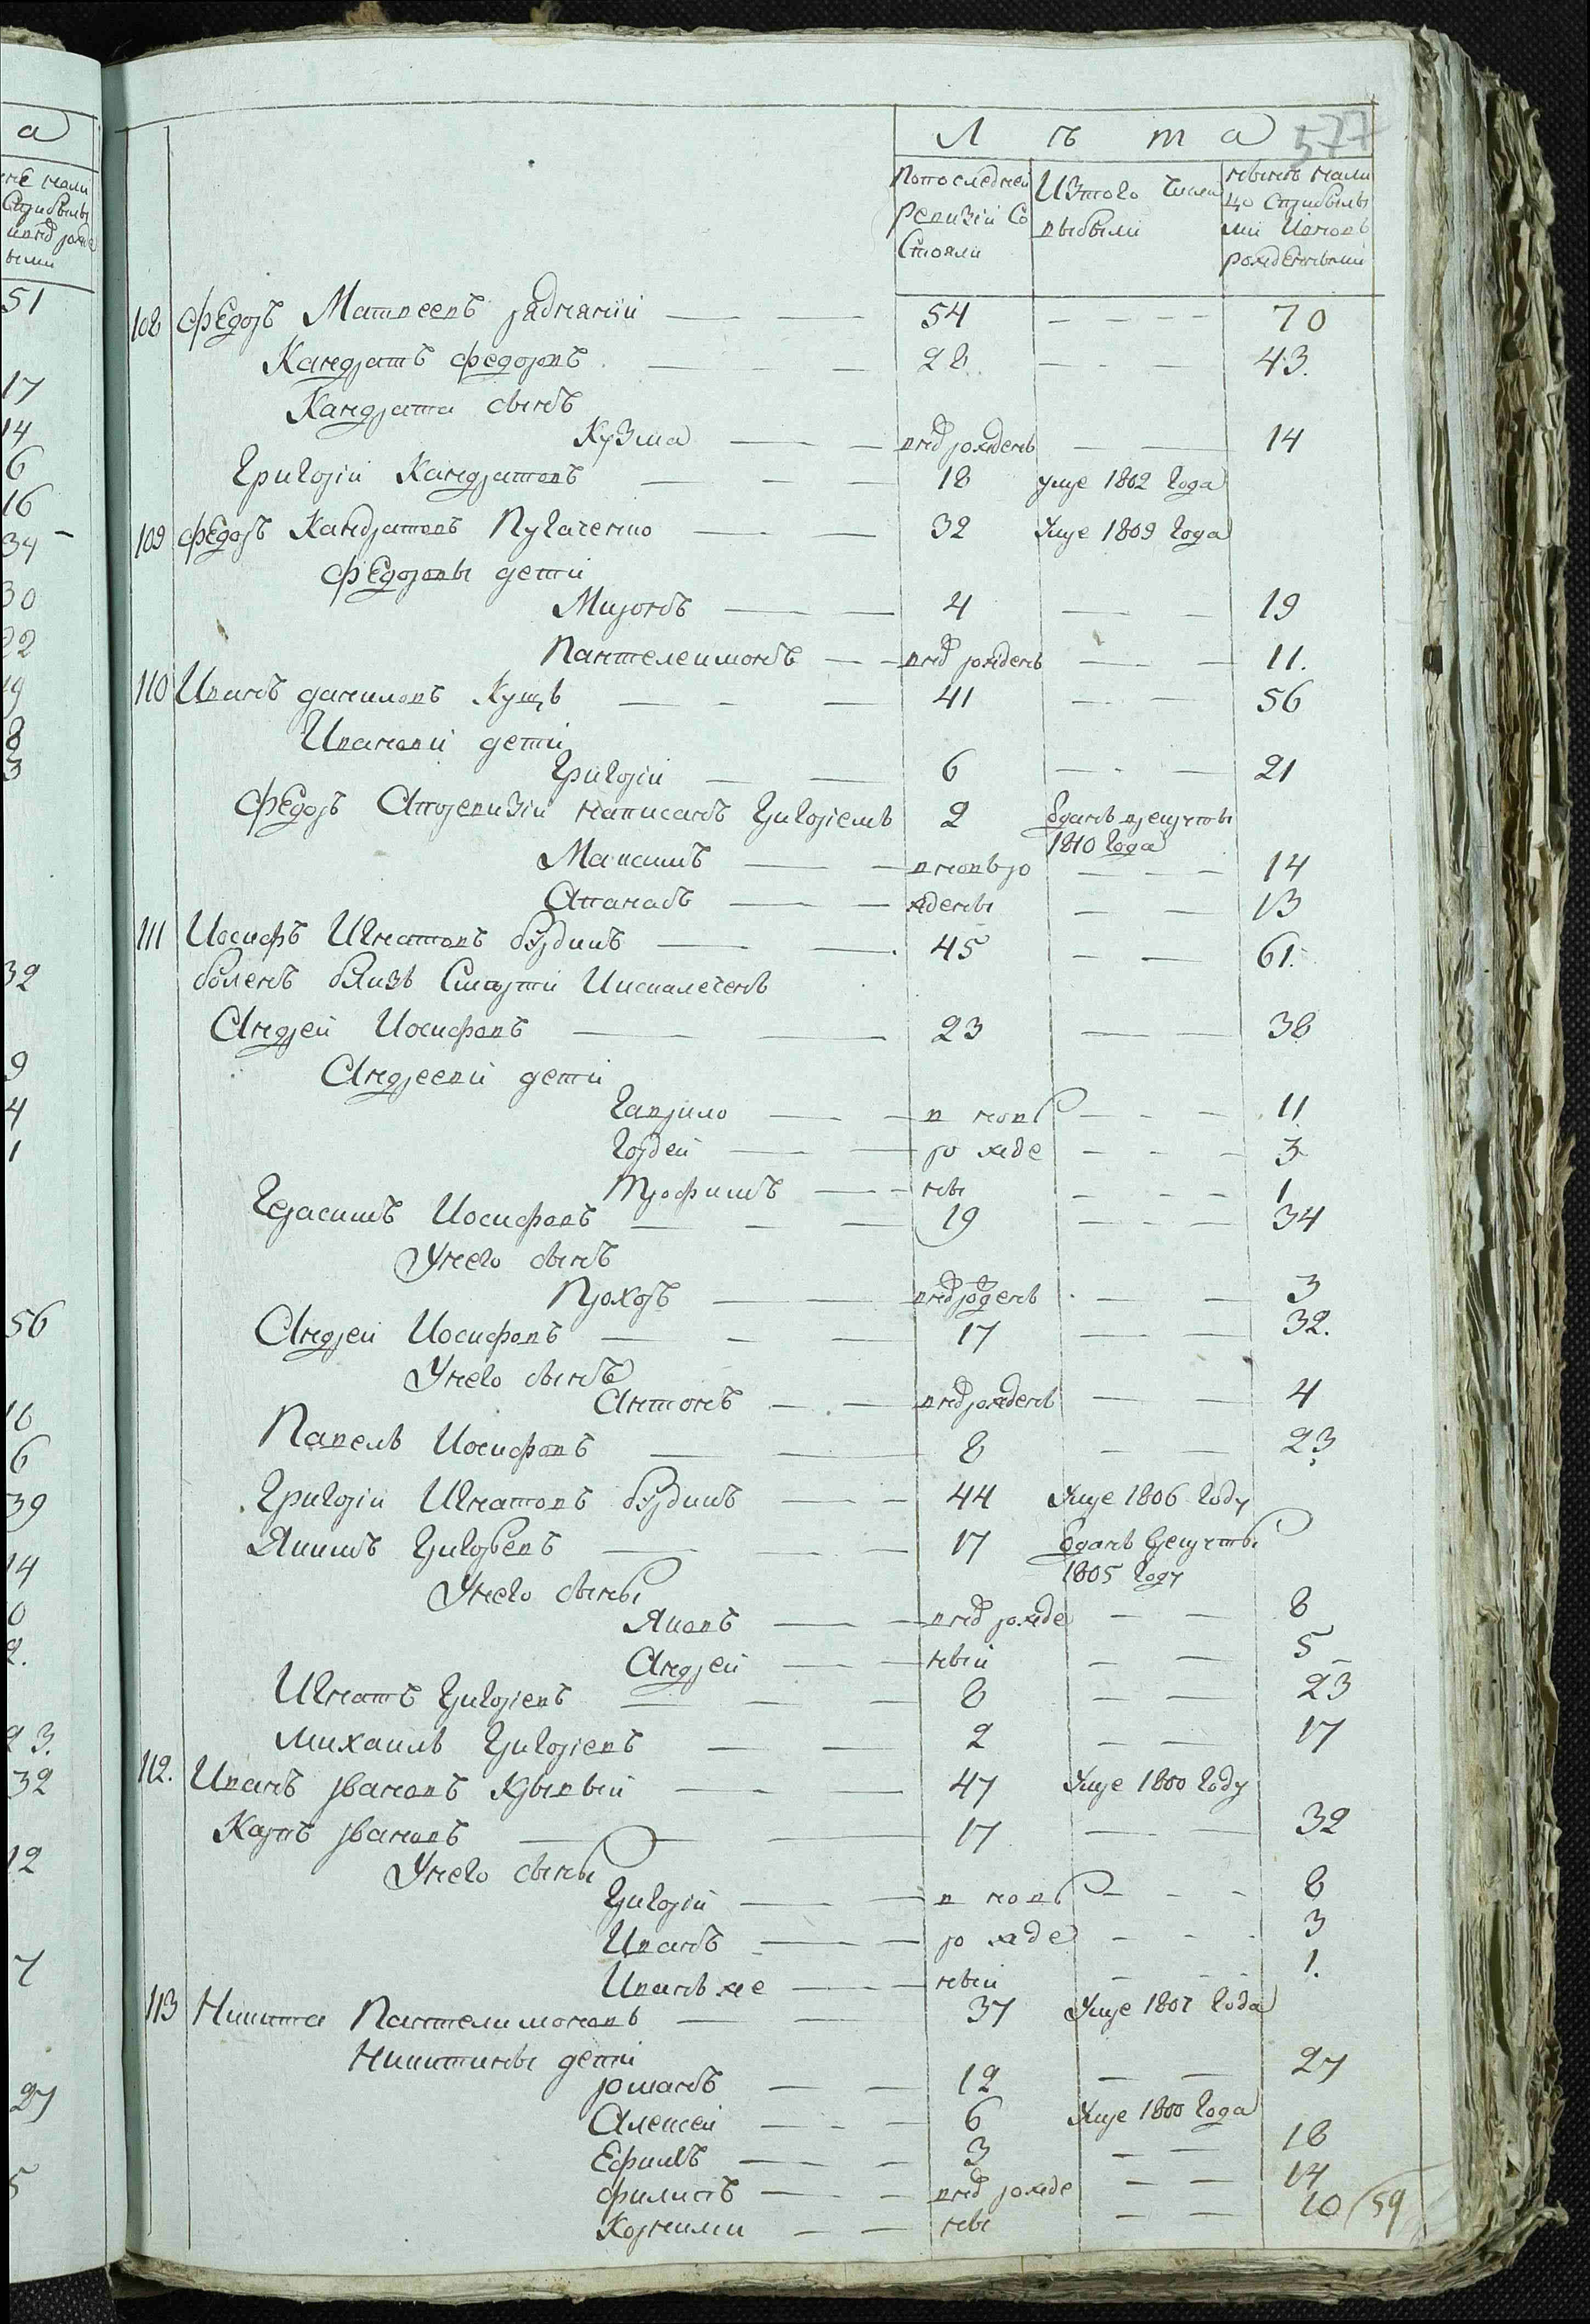 а
51
17
14
6
16
34 -
30
22
19
8
3
32
9
4
1
56
6
39
14
0
2.
23.
32
12
7
27
5
Л ѣ т а 577
Попоследней Изтого Числа нынѣ нали
Ревизіи Со выбыли цо Сприбылы
Стояли ми Ивновь
рожденными
108 Федоръ Матвеевъ Рудчаній — — 54 — — — — 70
Кандратъ Федоровъ — — — 28 — — — 43.
Кандрата сынъ
Кузма — — — внѡ рожденъ — — 14
Григорій Кандратовъ — — — 18 умре 1802 года
109 Федоръ Кандратовъ Пугаченко — — 32 Умре 1809 года
Федоровы дети
Миронъ — — 4 — — 19
Пантелеимонъ — — внѡ рожденъ — — 11.
110 Иванъ даниловъ Кущъ — — — 41 — — — 56
Ивановй дети
Григорій — — 6 — — — 21
Федоръ Строревизіи написанъ Григоріемъ 2 Отданъ врекруты
1810 года
Максимъ — — — вновь ро — — — 14
Апанасъ — — — жденны — — 13
111 Иосифъ Игнатовъ бурдимъ — — 45 — — 61.
боленъ близь Смерти Иискалеченъ
Андрей Иосифовъ — — 23 — — 38
Андреевй дети
Гаврило — — — в новь — — — 11
Гордей — — — ро жде — — — 3
Трофимъ — — ны — — — 1
Герасимъ Иосифовъ — — — 19 — — — 34
Унего сынъ
Прохоръ — — внѡ рожденъ — — 3
Андрей Иосифовъ — — — 17 — — 32.
Унего сынъ
Антонъ — — внѡ рожденъ — — 4
Павелъ Иосифовъ — — 8 — — 23
Григорій Игнатовъ бурдимъ — — 44 Умре 1806 году
Якимъ Григорьевъ — — — 17 Отданъ Врекруты
1805 году
Унего сыны
Яковъ — — — внѡ рожде — — 8
Андрей — — — ный — — 5
Игнатъ Григоріевъ — — — 8 — — 23
Михаилъ Григоріевъ — — 2 — — 17
112. Иванъ Ивановъ Кривый — — — 47 Умре 1800 году
Карпъ Ивановъ — — — 17 — — — 32
Унего сыны
Григорій — — — в новь — — — 8
Иванъ — — — ро жде — — — 3
Иванъ же — — — ный — — — 1.
113 Никита Пантелимоновъ — — 37 Умре 1807 года
Никитины дети
Романъ — — 12 — — 27
Алексей — — — 6 Умре 1800 года
Ефимъ — — — 3 — — 18
Филипъ — — — внѡ рожде — — 14
Корнилии — — ны — — 10 (59